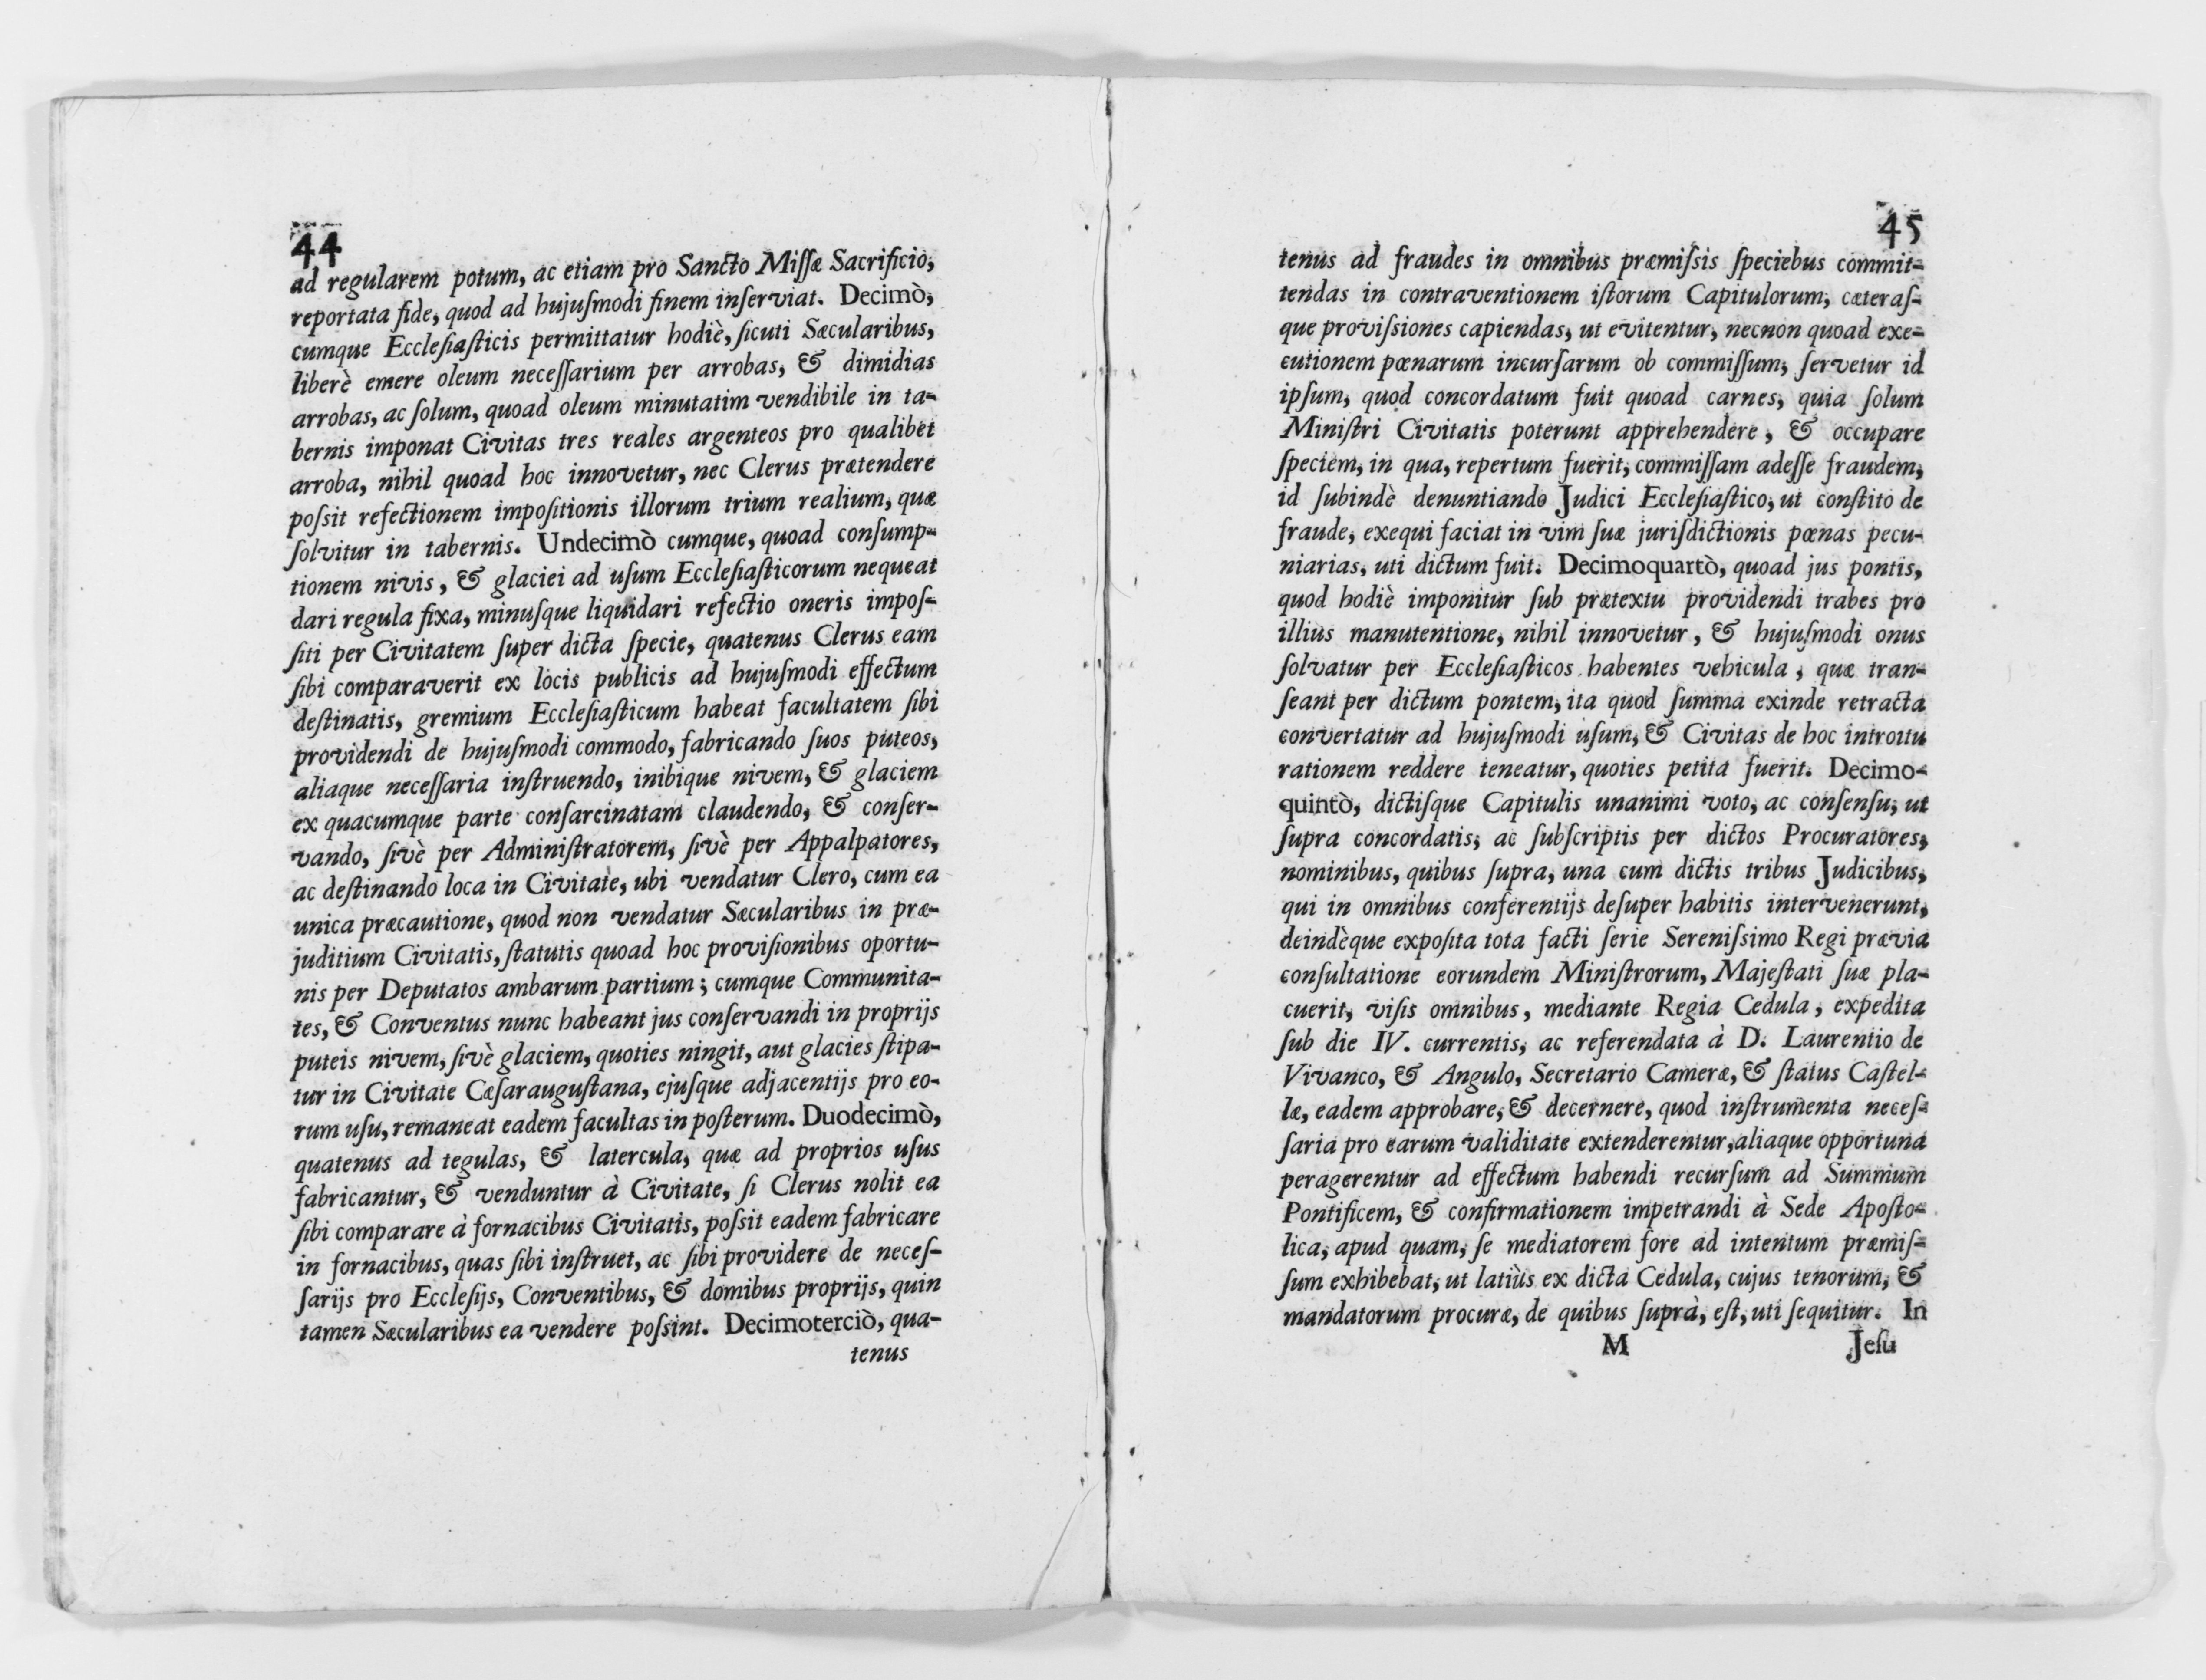 44
ad regularem potum, ac etiam pro Sancto Miſſæ Sacrificio,
reportata fide, quod ad hujuſmodi finem inſerviat. Decimò,
cumque Eccleſiaſticis permittatur hodiè, ſicuti Sæcularibus,
liberè emere oleum neceſſarium per arrobas, & dimidias
arrobas, ac ſolum, quoad oleum minutatim vendibile in ta-
bernis imponat Civitas tres reales argenteos pro qualibet
arroba, nihil quoad hoc innovetur, nec Clerus prætendere
poſsit refectionem impoſitionis illorum trium realium, quæ
ſolvitur in tabernis. Undecimò cumque, quoad conſump-
tionem nivis, & glaciei ad uſum Eccleſiaſticorum nequeat
dari regula fixa, minuſque liquidari refectio oneris impoſ-
ſiti per Civitatem ſuper dicta ſpecie, quatenus Clerus eam
ſibi comparaverit ex locis publicis ad hujuſmodi effectum
deſtinatis, gremium Eccleſiaſticum habeat facultatem ſibi
providendi de hujuſmodi commodo, fabricando ſuos puteos,
aliaque neceſſaria inſtruendo, inibique nivem, & glaciem
ex quacumque parte conſarcinatam claudendo, & conſer-
vando, ſivè per Adminiſtratorem, ſivè per Appalpatores,
ac deſtinando loca in Civitate, ubi vendatur Clero, cum ea
unica præcautione, quod non vendatur Sæcularibus in præ-
juditium Civitatis, ſtatutis quoad hoc proviſionibus oportu-
nis per Deputatos ambarum partium; cumque Communita-
tes, & Conventus nunc habeant jus conſervandi in proprijs
puteis nivem, ſivè glaciem, quoties ningit, aut glacies ſtipa-
tur in Civitate Cæſarauguſtana, ejuſque adjacentijs pro eo-
rum uſu, remaneat eadem facultas in poſterum. Duodecimò,
quatenus ad tegulas, & latercula, quæ ad proprios uſus
fabricantur, & venduntur à Civitate, ſi Clerus nolit ea
ſibi comparare à fornacibus Civitatis, poſsit eadem fabricare
in fornacibus, quas ſibi inſtruet, ac ſibi providere de neceſ-
ſarijs pro Eccleſijs, Conventibus, & domibus proprijs, quin
tamen Sæcularibus ea vendere poſsint. Decimoterciò, qua-
tenus
45
tenus ad fraudes in omnibus præmiſsis ſpeciebus commit-
tendas in contraventionem iſtorum Capitulorum, cæteraſ-
que proviſsiones capiendas, ut evitentur, necnon quoad exe-
cutionem pœnarum incurſarum ob commiſſum, ſervetur id
ipſum, quod concordatum fuit quoad carnes, quia ſolum
Miniſtri Civitatis poterunt apprehendere, & occupare
ſpeciem, in qua, repertum fuerit, commiſſam adeſſe fraudem,
id ſubindè denuntiando Judici Eccleſiaſtico, ut conſtito de
fraude, exequi faciat in vim ſuæ juriſdictionis pœnas pecu-
niarias, uti dictum fuit. Decimoquartò, quoad jus pontis,
quod hodiè imponitur ſub prætextu providendi trabes pro
illius manutentione, nihil innovetur, & hujuſmodi onus
ſolvatur per Eccleſiaſticos habentes vehicula, quæ tran-
ſeant per dictum pontem, ita quod ſumma exinde retracta
convertatur ad hujuſmodi uſum, & Civitas de hoc introitu
rationem reddere teneatur, quoties petita fuerit. Decimo-
quintò, dictiſque Capitulis unanimi voto, ac conſenſu, ut
ſupra concordatis, ac ſubſcriptis per dictos Procuratores,
nominibus, quibus ſupra, una cum dictis tribus Judicibus,
qui in omnibus conferentijs deſuper habitis intervenerunt,
deindèque expoſita tota facti ſerie Sereniſsimo Regi prævia
conſultatione eorundem Miniſtrorum, Majeſtati ſuæ pla-
cuerit, viſis omnibus, mediante Regia Cedula, expedita
ſub die IV. currentis, ac referendata à D. Laurentio de
Vivanco, & Angulo, Secretario Cameræ, & ſtatus Caſtel-
læ, eadem approbare, & decernere, quod inſtrumenta neceſ-
ſaria pro earum validitate extenderentur, aliaque opportuna
peragerentur ad effectum habendi recurſum ad Summum
Pontificem, & confirmationem impetrandi à Sede Apoſto-
lica, apud quam, ſe mediatorem fore ad intentum præmiſ-
ſum exhibebat, ut latiùs ex dicta Cedula, cujus tenorum, &
mandatorum procuræ, de quibus ſuprà, eſt, uti ſequitur. In
M Jeſu